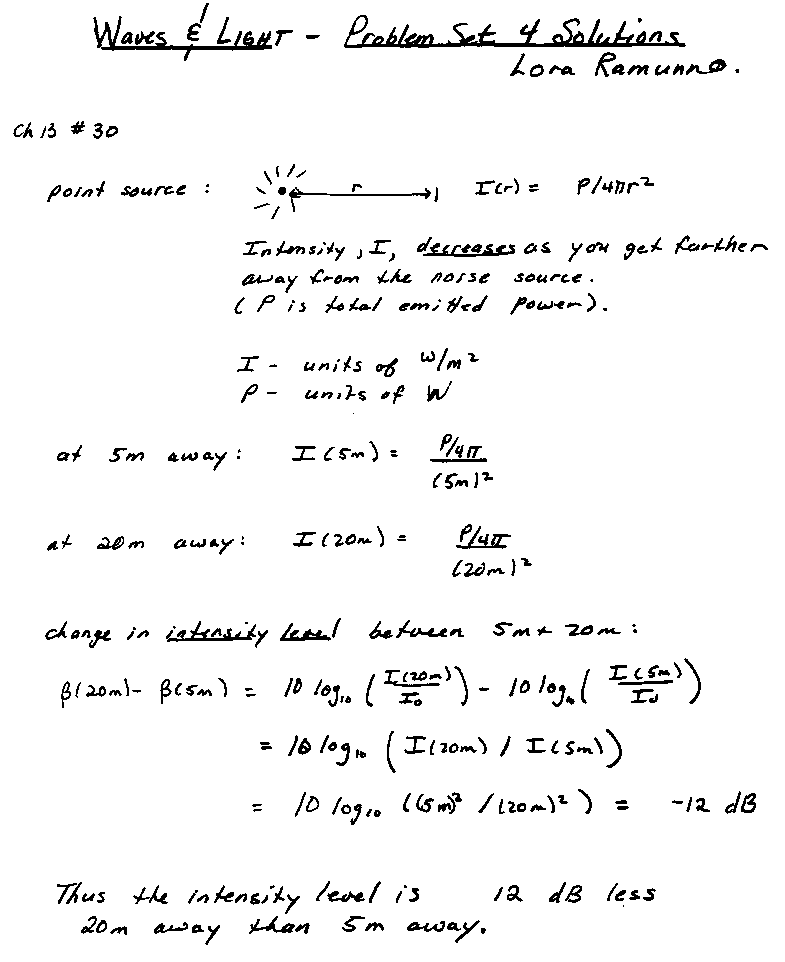 Waves & LIGHT - Problem Set 4 Solutions
Lora Ramunno.
Ch 13 # 30
point source : r I(r) = P/4πr²
Intensity, I, decreases as you get farther
away from the noise source.
( P is total emitted power).
I - units of W/m²
P - units of W
at 5m away: I(5m) = P/4π / (5m)²
at 20m away: I(20m) = P/4π / (20m)²
change in intensity level between 5m + 20m :
β(20m) - β(5m) = 10 log₁₀ ( I(20m) / I₀ ) - 10 log₁₀ ( I(5m) / I₀ )
= 10 log₁₀ ( I(20m) / I(5m) )
= 10 log₁₀ ((5m)² / (20m)² ) = -12 dB
Thus the intensity level is 12 dB less
20m away than 5m away.